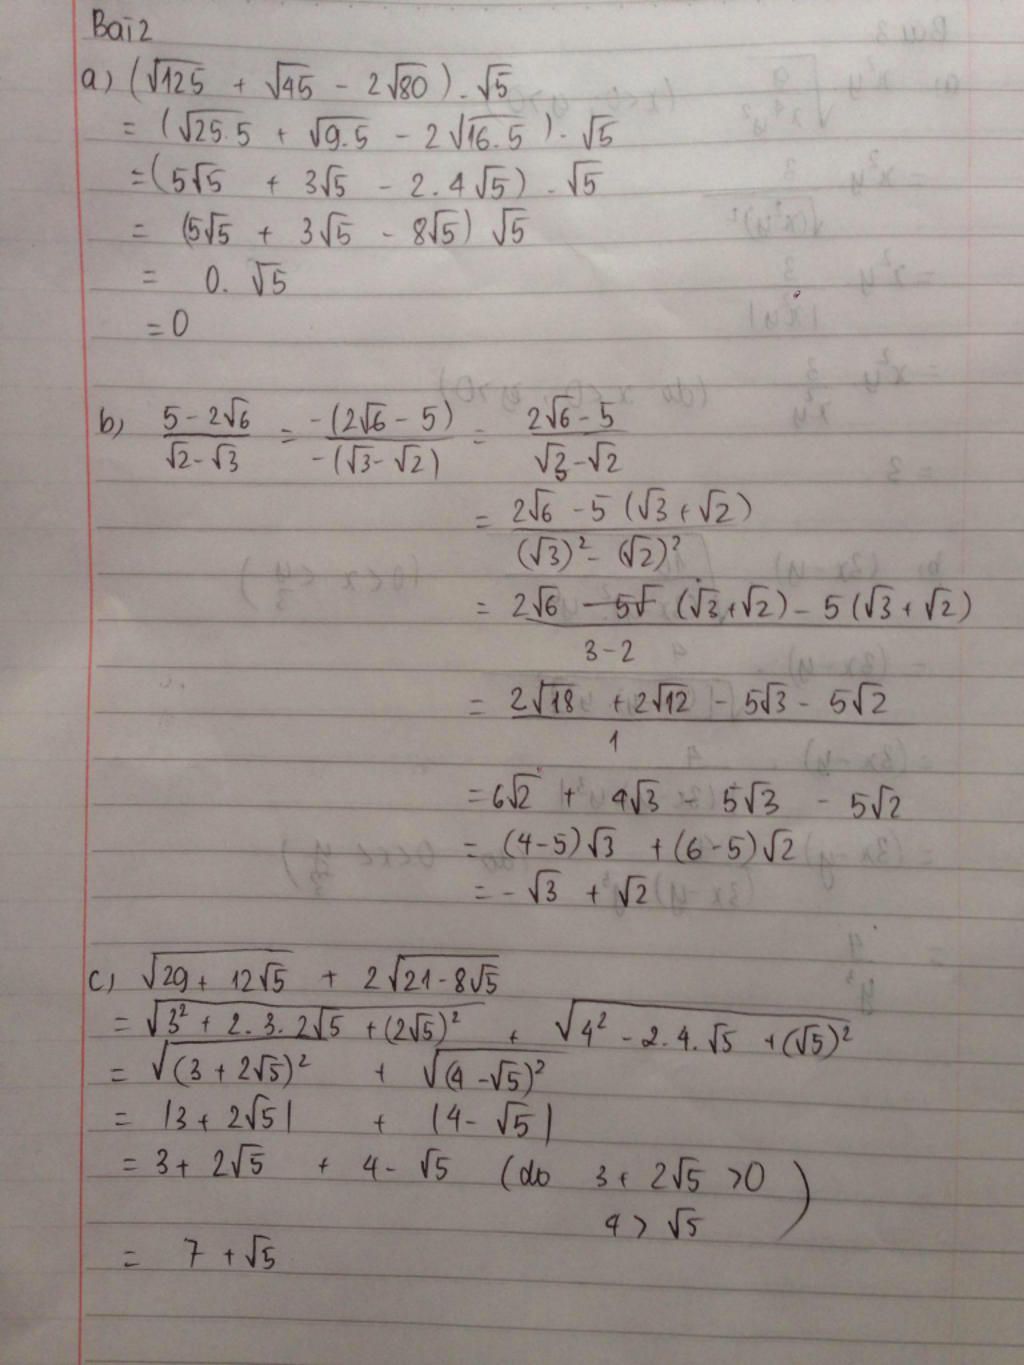 Bài 2
a) (√125 + √45 - 2√80) . √5
= (√25.5 + √9.5 - 2√16.5) . √5
=(5√5 + 3√5 - 2.4√5) . √5
= (5√5 + 3√5 - 8√5) √5
= 0. √5
= 0
b) (5 - 2√6)/(√2 - √3) = (-(2√6 - 5))/(-(√3 - √2)) = (2√6 - 5)/(√3 - √2)
= (2√6 - 5 (√3 + √2))/((√3)² - (√2)²)
= (2√6 (√3 + √2) - 5 (√3 + √2))/(3 - 2)
= (2√18 + 2√12 - 5√3 - 5√2)/1
= 6√2 + 4√3 - 5√3 - 5√2
= (4-5)√3 + (6-5)√2
= - √3 + √2
c) √(29 + 12√5) + 2√(21 - 8√5)
= √(3² + 2.3.2√5 + (2√5)²) + √(4² - 2.4.√5 + (√5)²)
= √((3 + 2√5)²) + √((4 - √5)²)
= |3 + 2√5| + |4 - √5|
= 3 + 2√5 + 4 - √5 (do 3 + 2√5 >0
4 > √5)
= 7 + √5